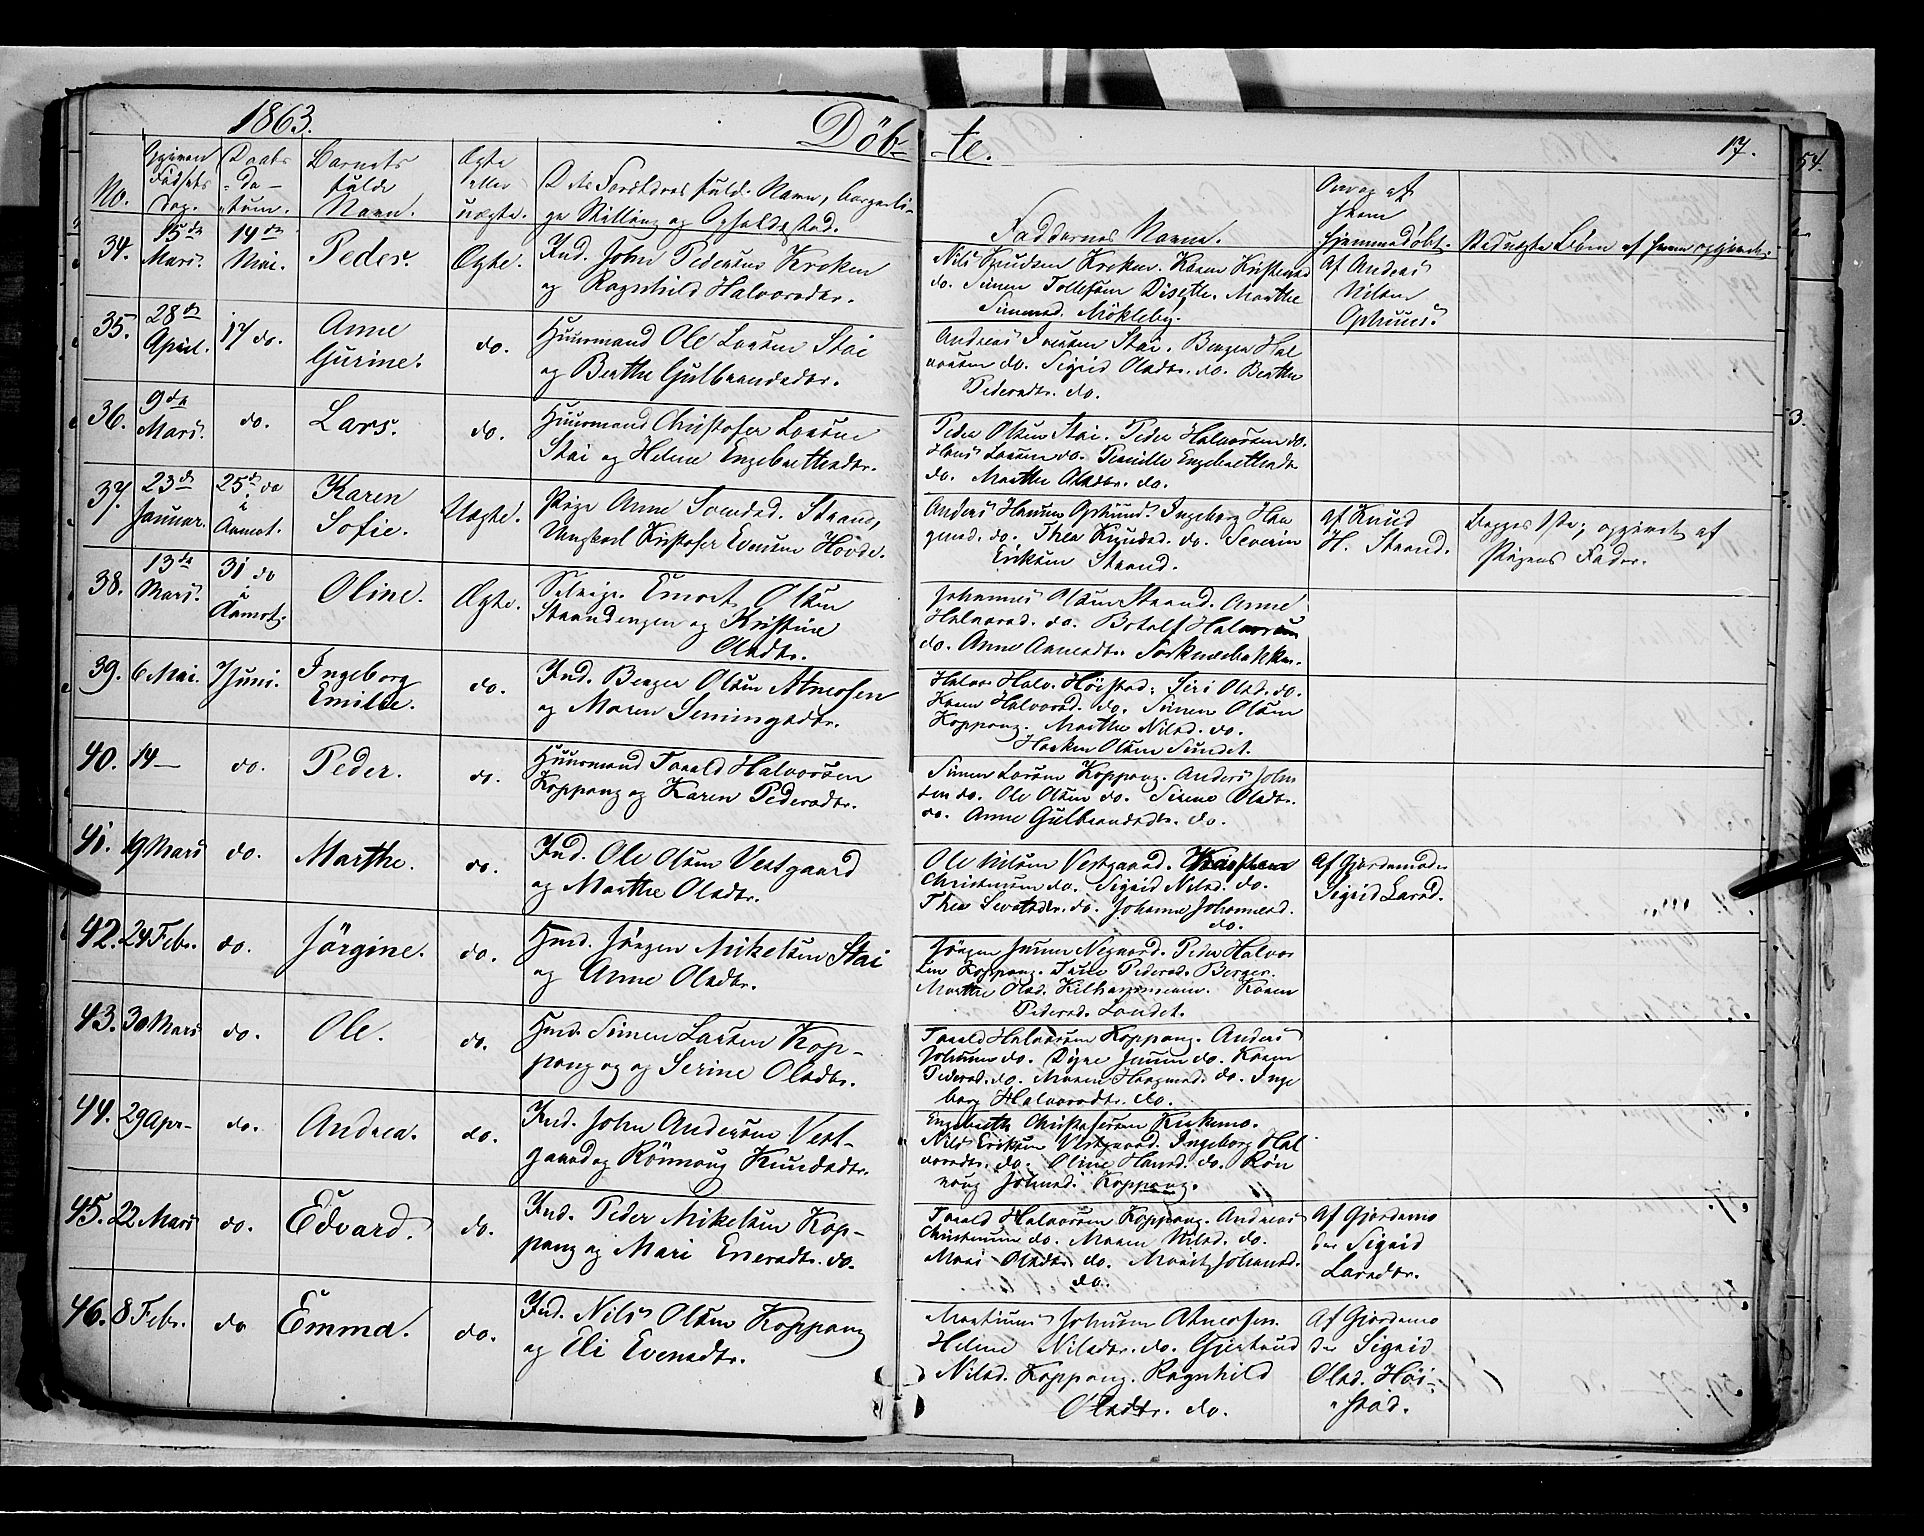 1863. Döb- te. 17.
No. Opgiven Fødsels Dag. Daabs da- tum. Barnets fulde Navn. Ægte eller uægte. Forældres fulde Navn, borgerli-
ge Stilling og Opholdssted. Faddernes Navne. hjemmedöbt. Ved uægte Börn af hvem opgivet.
34. 15de Mars. 14de Mai. Peder. Ægte. Ind. John Pedersen Kroken
og Ragnhild Halvorsdtr.
Nils Knudsen Kroken. Karen
do. Simen Tollefsen Disethe. Marthe
Simensd. Mökleby.
Af Andreas
Nilsen
35. 28de April. 17 do. Anne
Gurine. do. Huusmand Ole Larsen Stai
og Berthe Gulbrandsdtr.
Andreas Iversen Stai. Berger Hal
vorsen do. Sigrid Olsdtr. do. Berthe
Pedersdtr. do.
36. 9de Mars. do. Lars. do. Huusmand Christofer Larsen
Stai og Helene Engebrethsdtr.
Peder Olsen Stai. Peder Halvorsen do.
Hans Larsen do. Pernille Engebrethsdtr
do. Marthe Olsdtr. do.
37. 23de Januar. 25de do i Aamot. Karen
Sofie. Uægte. Pige Anne Strand,
Ungkarl Kristofer Evensen Hovde.
Anders Hansen Ingeborg Haa
gensd. do. Thea Knudsd. do. Severin
Eriksen Strand.
af Knud
H. Strand.
Begges 1ste; opgivet af
Pigens Fader.
38. 13de Mars. 31 do i Aamot. Oline. Ægte. Olsen
Strandengen og Kristine
Olsdtr.
Johannes Olsen Strand. Anne
Halvorsd. do. Botolf Halvorsen
do. Anne
39. 6 Mai. 7 Juni. Ingeborg
Emilie. do. Ind. Berger Olsen Atneosen
og Maren Semingsdtr.
Halvor Halv. Höistad. Siri Olsd. do.
Karen Halvorsd. do. Simen Olsen
Koppang. Marthe Nilsd. do.
Haaken Olsen Sundet.
40. 14 — do. Peder. do. Huusmand Tarald Halvorsen
Koppang og Karen Pedersdtr.
Simen Larsen Koppang. Anders John
sen do. Ole Olsen do. Sirene Olsdtr.
do. Anne Gulbrandsdtr. do.
41. 19 Mars do. Marthe. do. Ind. Ole Olsen Vestgaard
og Marthe Olsdtr.
Ole Nilsen Vestgaard. Karsten
Christensen do. Sigrid Nilsd. do.
Thea do. Johanne Johannesd.
do.
Af Gjordemoder
Sigrid Larsd.
42. 24 Febr. do. Jörgine. do. Hmd. Jörgen Mikelsen Stai
og Anne Olsdtr.
Jörgen Jensen Negaard. Peder Halvor
sen Koppang. Pedersd. Berger.
Marthe Olsd. Karen
Pedersd. Sundet.
43. 30 Mars do. Ole. do. Hmd. Simen Larsen Kop-
pang og og Serine Olsdtr.
Tarald Halvorsen Koppang. Anders
Johnsen do. Jensen do. Karen
Pedersd. do. Maren Haagensd. do. Inge
borg Halvorsdtr. do.
44. 29 Apr- do. Andrea. do. Ind. John Andersen Vest-
gaard og Rönnoug Knudsdtr.
Engebreth Christofersen Kirkemo.
Nils Eriksen Vestgaard. Ingeborg Hal
vorsdtr. do. Oline Hansd. do. Rön
noug Johnsd. Koppang.
45. 22 Mars do. Edvard. do. Ind. Peder Mikelsen Kop-
pang og Mari Eversdtr. do.
Tarald Halvorsen Koppang. Andreas
Christensen do. Maren Nilsd. do.
Mari Olsdtr. do. Marit Johansd.
do.
Af Gjordemo
der Sigrid
Larsdtr.
46. 8 Febr. do Emma. do. Ind. Nils Olsen Koppang
og Eli Evensdtr.
Martinus Johnsen Atneosen.
Helene Nilsdtr. do. Gjertrud
Nilsd. Koppang. Ragnhild
Olsdtr. do.
Af Gjordemo
der Sigrid
Olsd. Höi-
stad.
54.
3.